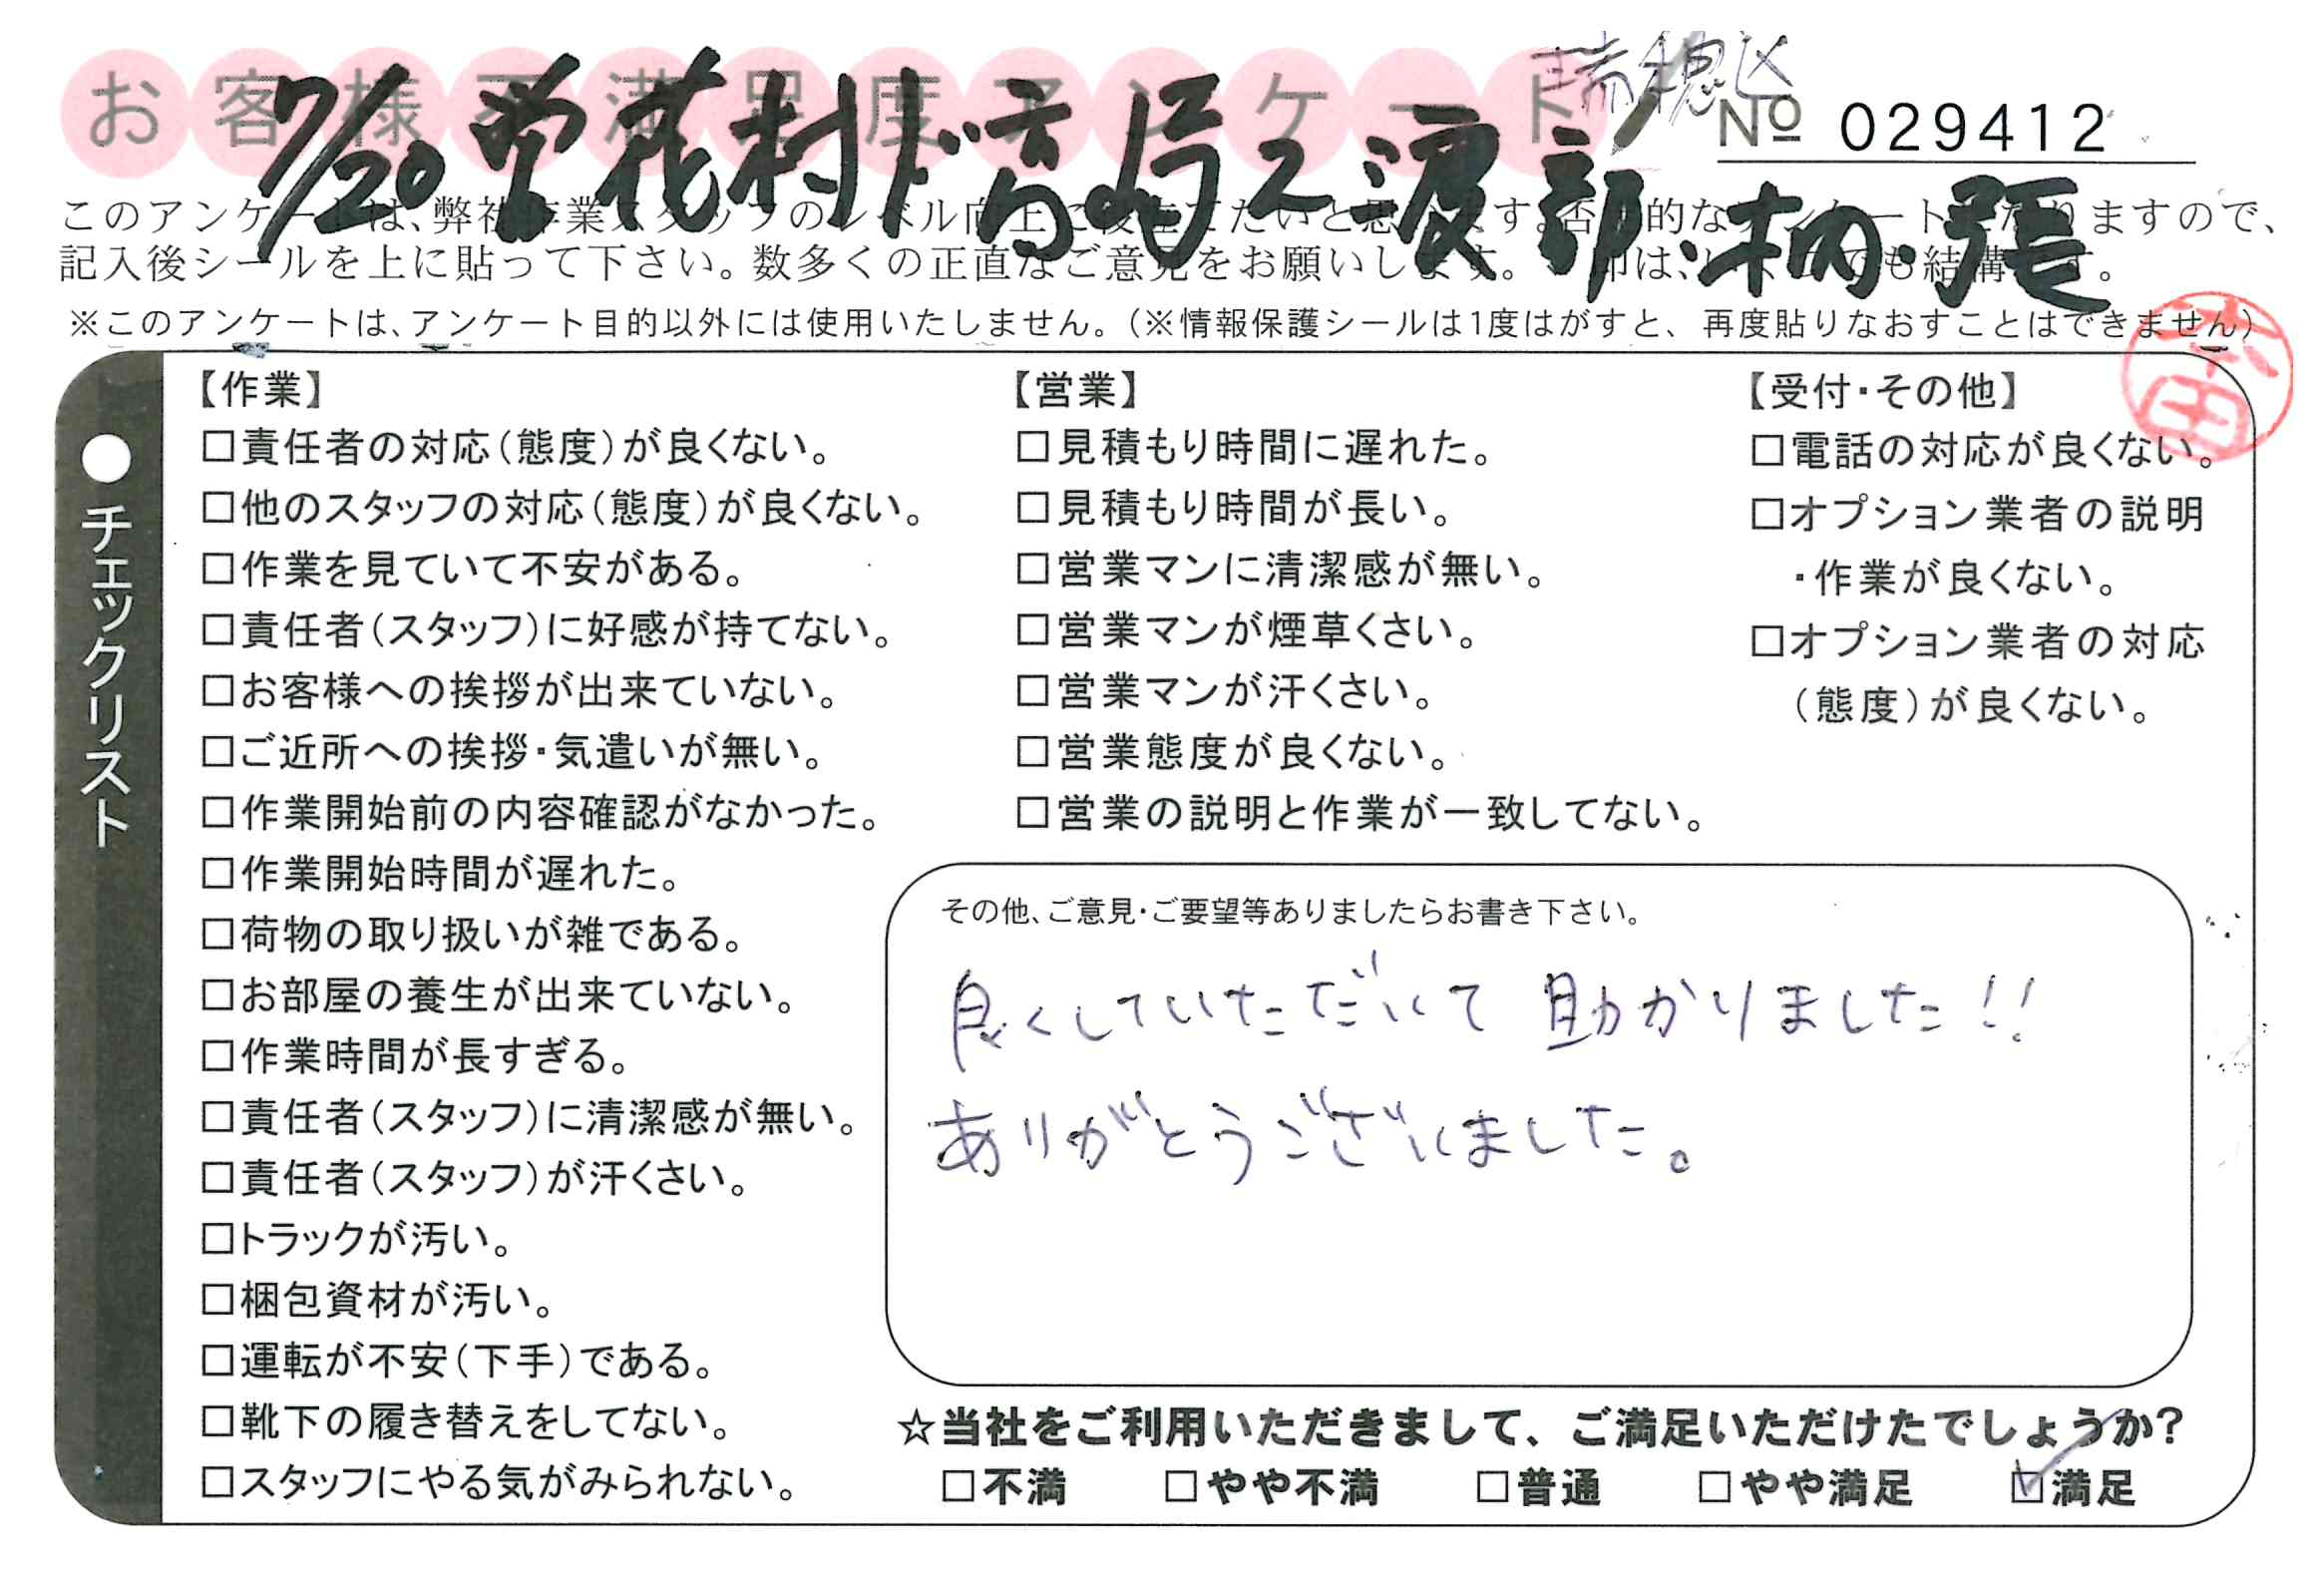 お客様不満足度アンケート
瑞穂区
№ 029412
7/20 花村 高 渡部・柄・張
このアンケートは、弊社作業スタッフのレベル向上に役立てたいと思います。否定的なアンケートとなりますので、
記入後シールを上に貼って下さい。数多くの正直なご意見をお願いします。 は、 も結構です。
※このアンケートは、アンケート目的以外には使用いたしません。（※情報保護シールは1度はがすと、再度貼りなおすことはできません）
本田
●チェックリスト
【作業】
□責任者の対応（態度）が良くない。
□他のスタッフの対応（態度）が良くない。
□作業を見ていて不安がある。
□責任者（スタッフ）に好感が持てない。
□お客様への挨拶が出来ていない。
□ご近所への挨拶・気遣いが無い。
□作業開始前の内容確認がなかった。
□作業開始時間が遅れた。
□荷物の取り扱いが雑である。
□お部屋の養生が出来ていない。
□作業時間が長すぎる。
□責任者（スタッフ）に清潔感が無い。
□責任者（スタッフ）が汗くさい。
□トラックが汚い。
□梱包資材が汚い。
□運転が不安（下手）である。
□靴下の履き替えをしてない。
□スタッフにやる気がみられない。
【営業】
□見積もり時間に遅れた。
□見積もり時間が長い。
□営業マンに清潔感が無い。
□営業マンが煙草くさい。
□営業マンが汗くさい。
□営業態度が良くない。
□営業の説明と作業が一致してない。
【受付・その他】
□電話の対応が良くない。
□オプション業者の説明
・作業が良くない。
□オプション業者の対応
（態度）が良くない。
その他、ご意見・ご要望等ありましたらお書き下さい。
良くしていただいて 助かりました!!
ありがとうございました。
☆当社をご利用いただきまして、ご満足いただけたでしょうか?
□不満 □やや不満 □普通 □やや満足 ☑満足